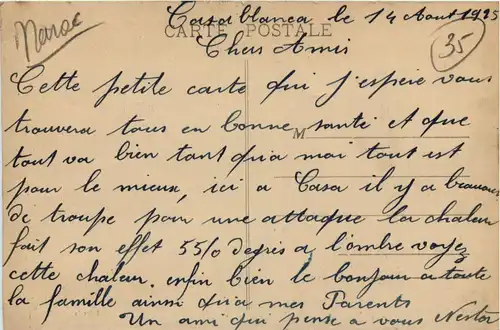 Maroc
Casablanca le 14 Aout 1925
CARTE POSTALE
35
Chers Amis
Cette petite carte qui j'espère vous
trouvera tous en bonne santé et que
M
tout va bien tant qu'a moi tout est
pour le mieux, ici a Casa il y a beaucoup
de troupe pour une attaque la chaleur
fait son effet 55/0 degrés a l'ombre voyez
cette chaleur. enfin bien le bonjour a toute
la famille ainsi qu'a mes Parents
Un ami qui pense a vous Nestor